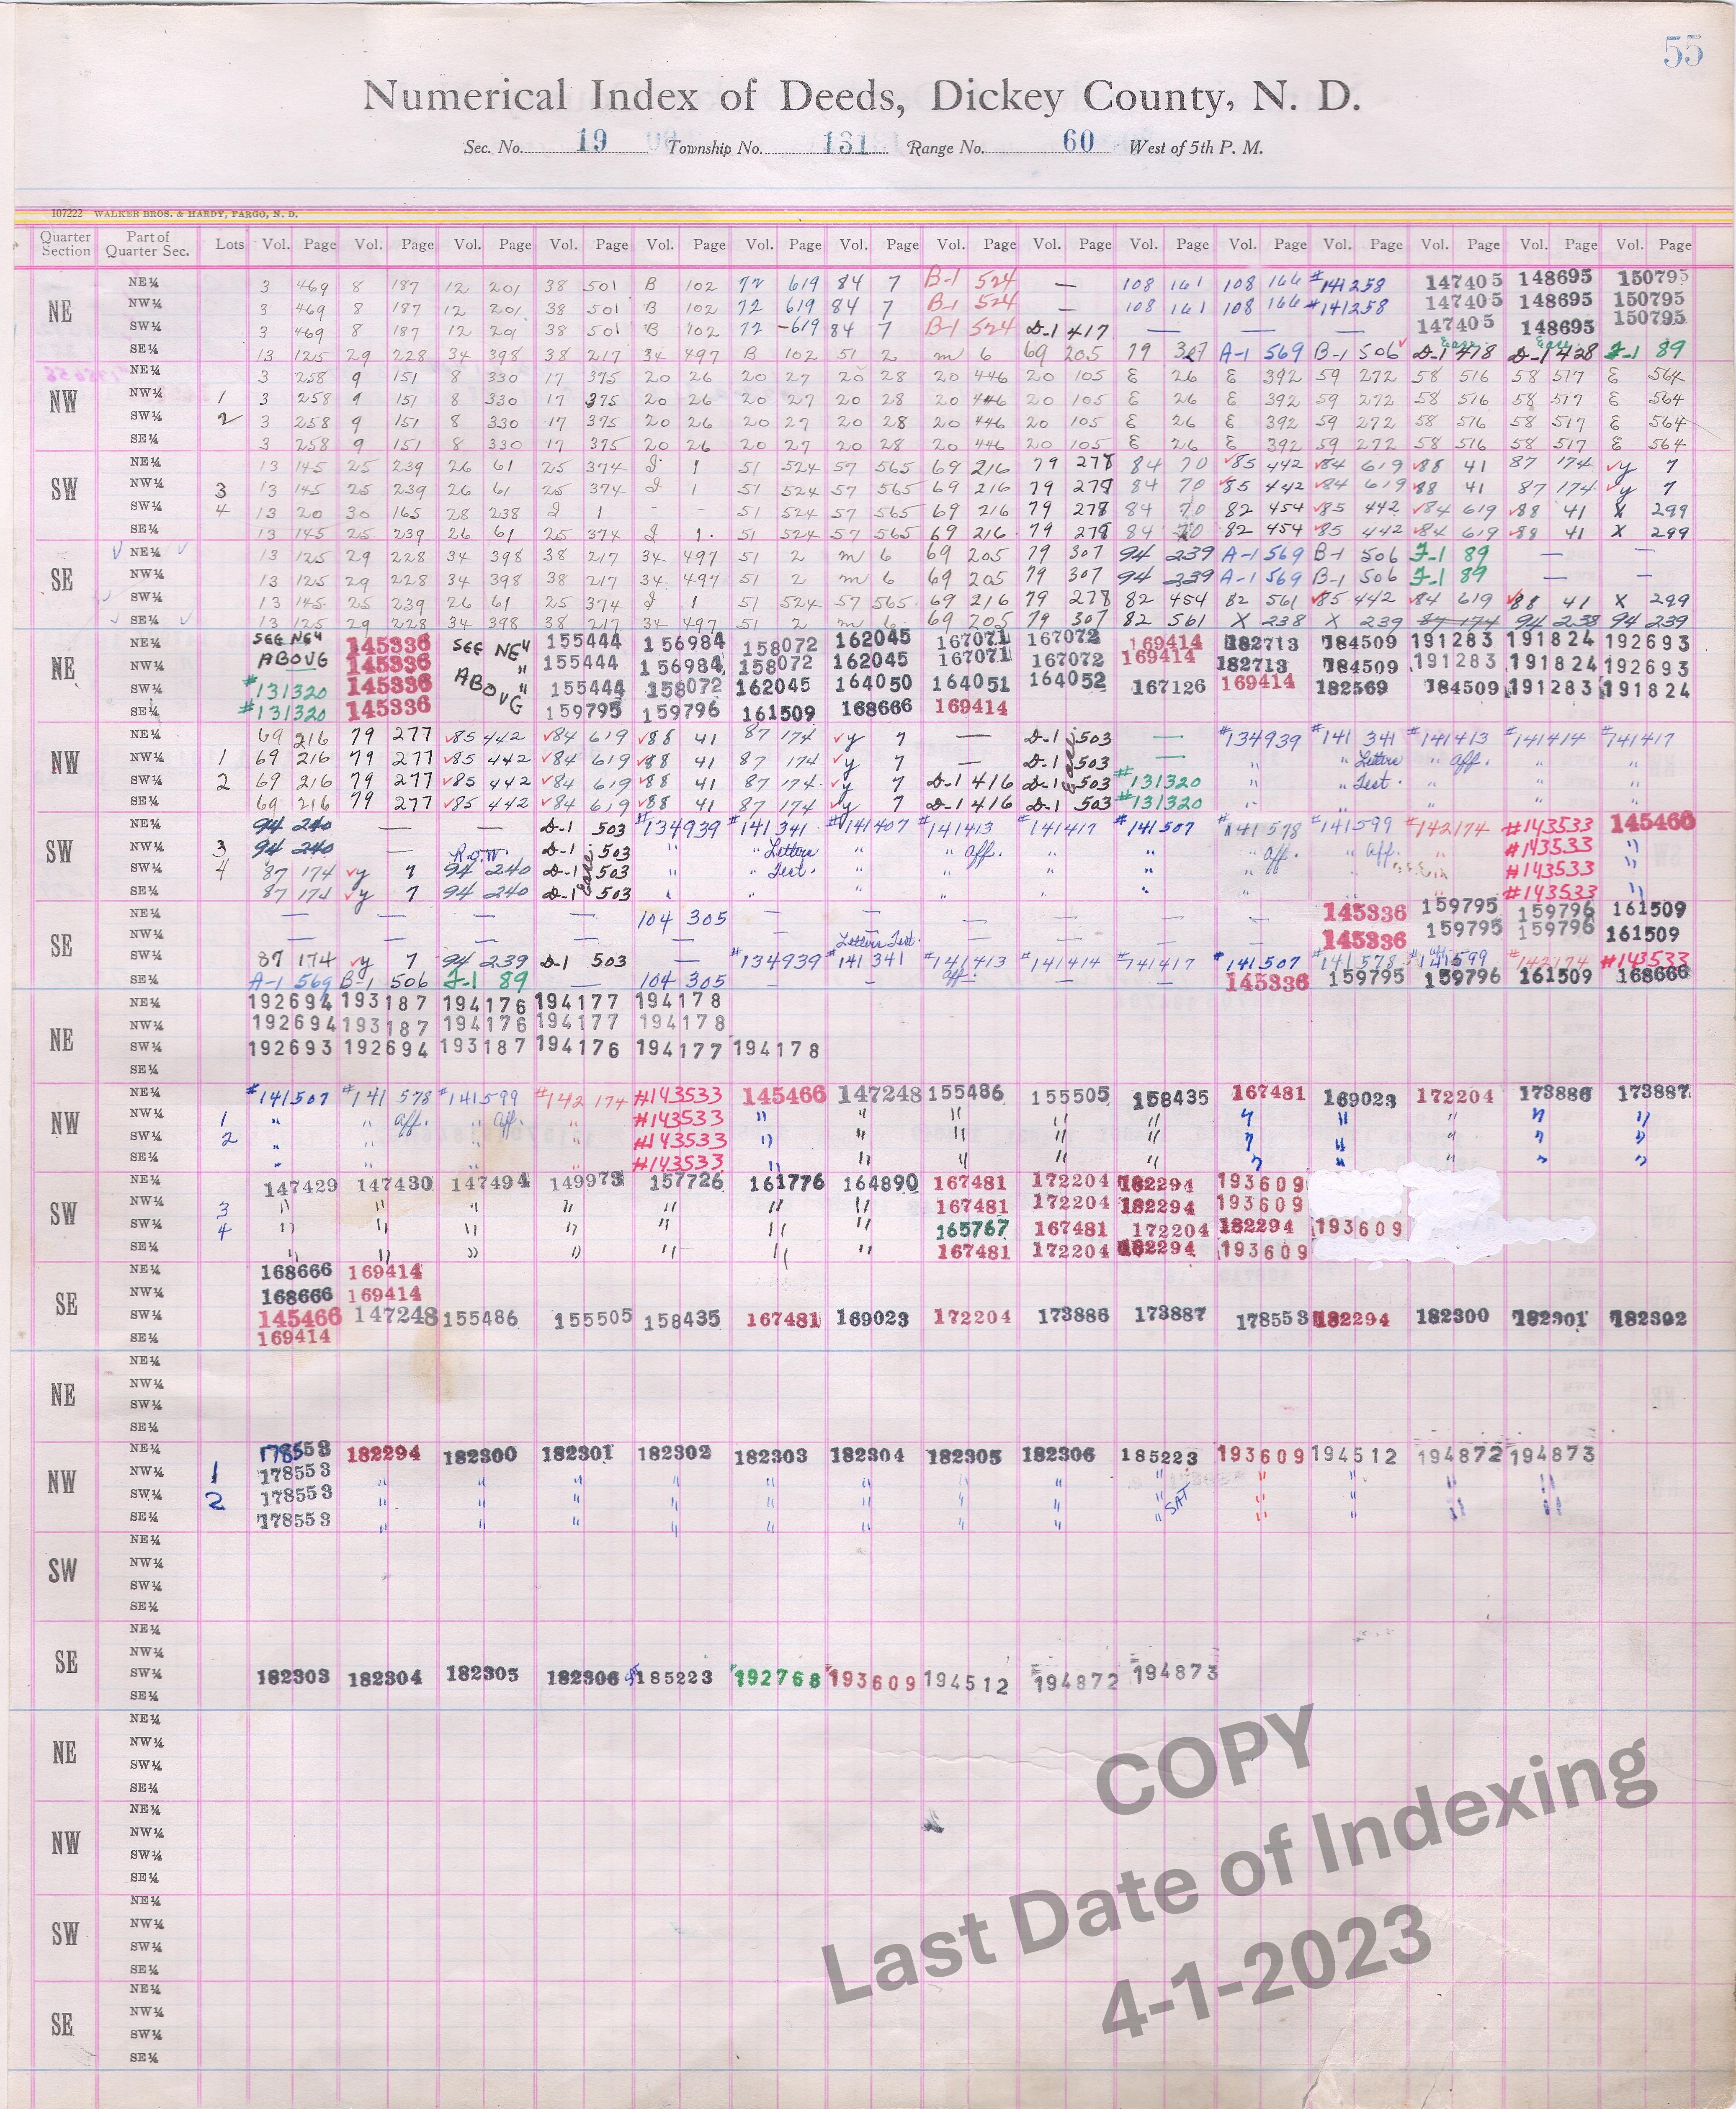 55
Numerical Index of Deeds, Dickey County, N. D.
Sec. No. 19 Township No. 131 Range No. 60 West of 5th P. M.
107222 WALKER BROS. & HARDY, FARGO, N. D.
Quarter Section Part of Quarter Sec. Lots Vol. Page Vol. Page Vol. Page Vol. Page Vol. Page Vol. Page Vol. Page Vol. Page Vol. Page Vol. Page Vol. Page Vol. Page Vol. Page Vol. Page Vol. Page
NE NE¼ 3 469 8 187 12 201 38 501 B 102 72 619 84 7 B-1 524 — 108 161 108 166 #141258 147405 148695 150795
NW¼ 3 469 8 187 12 201 38 501 B 102 72 619 84 7 B-1 524 — 108 161 108 166 #141258 147405 148695 150795
SW¼ 3 469 8 187 12 201 38 501 B 102 72 -619 84 7 B-1 524 D-1 417 — — — 147405 148695 150795
SE¼ 13 125 29 228 34 398 38 217 34 497 B 102 51 2 m 6 69 205 79 307 A-1 569 B-1 506 Ease. D-1 418 Ease. D-1 428 J-1 89
NW NE¼ 3 258 9 151 8 330 17 375 20 26 20 27 20 28 20 446 20 105 E 26 E 392 59 272 58 516 58 517 E 564
NW¼ 1 3 258 9 151 8 330 17 375 20 26 20 27 20 28 20 446 20 105 E 26 E 392 59 272 58 516 58 517 E 564
SW¼ 2 3 258 9 151 8 330 17 375 20 26 20 27 20 28 20 446 20 105 E 26 E 392 59 272 58 516 58 517 E 564
SE¼ 3 258 9 151 8 330 17 375 20 26 20 27 20 28 20 446 20 105 E 26 E 392 59 272 58 516 58 517 E 564
SW NE¼ 13 145 25 239 26 61 25 374 I 1 51 524 57 565 69 216 79 278 84 70 ✓85 442 ✓84 619 ✓88 41 87 174 ✓y 7
NW¼ 3 13 145 25 239 26 61 25 374 I 1 51 524 57 565 69 216 79 278 84 70 ✓85 442 ✓84 619 ✓88 41 87 174 ✓y 7
SW¼ 4 13 20 30 165 28 238 I 1 - - 51 524 57 565 69 216 79 278 84 70 82 454 ✓85 442 ✓84 619 ✓88 41 X 299
SE¼ 13 145 25 239 26 61 25 374 I 1 51 524 57 565 69 216 79 278 84 70 82 454 ✓85 442 ✓84 619 ✓88 41 X 299
SE ✓ NE¼ ✓ 13 125 29 228 34 398 38 217 34 497 51 2 m 6 69 205 79 307 94 239 A-1 569 B-1 506 J-1 89 — —
NW¼ 13 125 29 228 34 398 38 217 34 497 51 2 m 6 69 205 79 307 94 239 A-1 569 B-1 506 J-1 89 — —
✓ SW¼ 13 145 25 239 26 61 25 374 I 1 51 524 57 565 69 216 79 278 82 454 82 561 ✓85 442 ✓84 619 ✓88 41 X 299
✓ SE¼ ✓ 13 125 29 228 34 398 38 217 34 497 51 2 m 6 69 205 79 307 82 561 X 238 X 239 87 174 94 238 94 239
NE NE¼ SEE NE" 145336 SEE NE" 155444 156984 158072 162045 167071 167072 169414 182713 184509 191283 191824 192693
NW¼ ABOVE 145336 " 155444 156984 158072 162045 167071 167072 169414 182713 184509 191283 191824 192693
SW¼ #131320 145336 ABOVE " 155444 158072 162045 164050 164051 164052 167126 169414 182569 184509 191283 191824
SE¼ #131320 145336 159795 159796 161509 168666 169414
NW NE¼ 69 216 79 277 ✓85 442 ✓84 619 ✓88 41 87 174 ✓y 7 — D-1 503 — #134939 #141 341 #141413 #141414 #141417
NW¼ 1 69 216 79 277 ✓85 442 ✓84 619 ✓88 41 87 174 ✓y 7 — D-1 Ease. 503 — " " Letters " Aff. " "
SW¼ 2 69 216 79 277 ✓85 442 ✓84 619 ✓88 41 87 174 ✓y 7 D-1 416 D-1 503 #131320 " " Test. " " "
SE¼ 69 216 79 277 ✓85 442 ✓84 619 ✓88 41 87 174 ✓y 7 D-1 416 D-1 503 #131320 " " " " "
SW NE¼ 94 240 — — D-1 503 #134939 #141341 #141407 #141413 #141417 #141507 #141578 #141599 #142174 #143533 145466
NW¼ 3 94 240 — R.O.W. D-1 503 " " Letters " " Aff. " " " Aff. " Aff. " #143533 "
SW¼ 4 87 174 ✓y 7 94 240 D-1 Ease. 503 " " Test. " " " " " " " #143533 "
SE¼ 87 174 ✓y 7 94 240 D-1 503 " " " " " " " " " #143533 "
SE NE¼ — — — — 104 305 — — — — — — 145336 159795 159796 161509
NW¼ — — — — — — — — — — — 145336 159795 159796 161509
SW¼ 87 174 ✓y 7 94 239 D-1 503 — #134939 Letters Test. #141341 #141413 Aff. #141414 #141417 #141507 #141578 #141599 #142174 #143533
SE¼ A-1 569 B-1 506 J-1 89 — 104 305 — — — — — 145336 159795 159796 161509 168666
NE NE¼ 192694 193187 194176 194177 194178
NW¼ 192694 193187 194176 194177 194178
SW¼ 192693 192694 193187 194176 194177 194178
SE¼
NW NE¼ #141507 #141 578 #141599 #142 174 #143533 145466 147248 155486 155505 158435 167481 169023 172204 173886 173887
NW¼ 1 " " Aff. " Aff. " #143533 " " " " " " " " " "
SW¼ 2 " " " " #143533 " " " " " " " " " "
SE¼ " " " " #143533 " " " " " " " " " "
SW NE¼ 147429 147430 147494 149973 157726 161776 164890 167481 172204 182294 193609
NW¼ 3 " " " " " " " 167481 172204 182294 193609
SW¼ 4 " " " " " " " 165767 167481 172204 182294 193609
SE¼ " " " " " " " 167481 172204 182294 193609
SE NE¼ 168666 169414
NW¼ 168666 169414
SW¼ 145466 147248 155486 155505 158435 167481 169023 172204 173886 173887 178553 182294 182300 182301 182302
SE¼ 169414
NE NE¼
NW¼
SW¼
SE¼
NW NE¼ 178553 182294 182300 182301 182302 182303 182304 182305 182306 185223 193609 194512 194872 194873
NW¼ 1 178553 " " " " " " " " " " " " "
SW¼ 2 178553 " " " " " " " " " SAT " " " "
SE¼ 178553 " " " " " " " " " " " " "
SW NE¼
NW¼
SW¼
SE¼
SE NE¼
NW¼
SW¼ 182303 182304 182305 182306 185223 192768 193609 194512 194872 194873
SE¼
NE NE¼
NW¼
SW¼
SE¼
NW NE¼
NW¼
SW¼
SE¼
SW NE¼
NW¼
SW¼
SE¼
SE NE¼
NW¼
SW¼
SE¼
COPY
Last Date of Indexing
4-1-2023